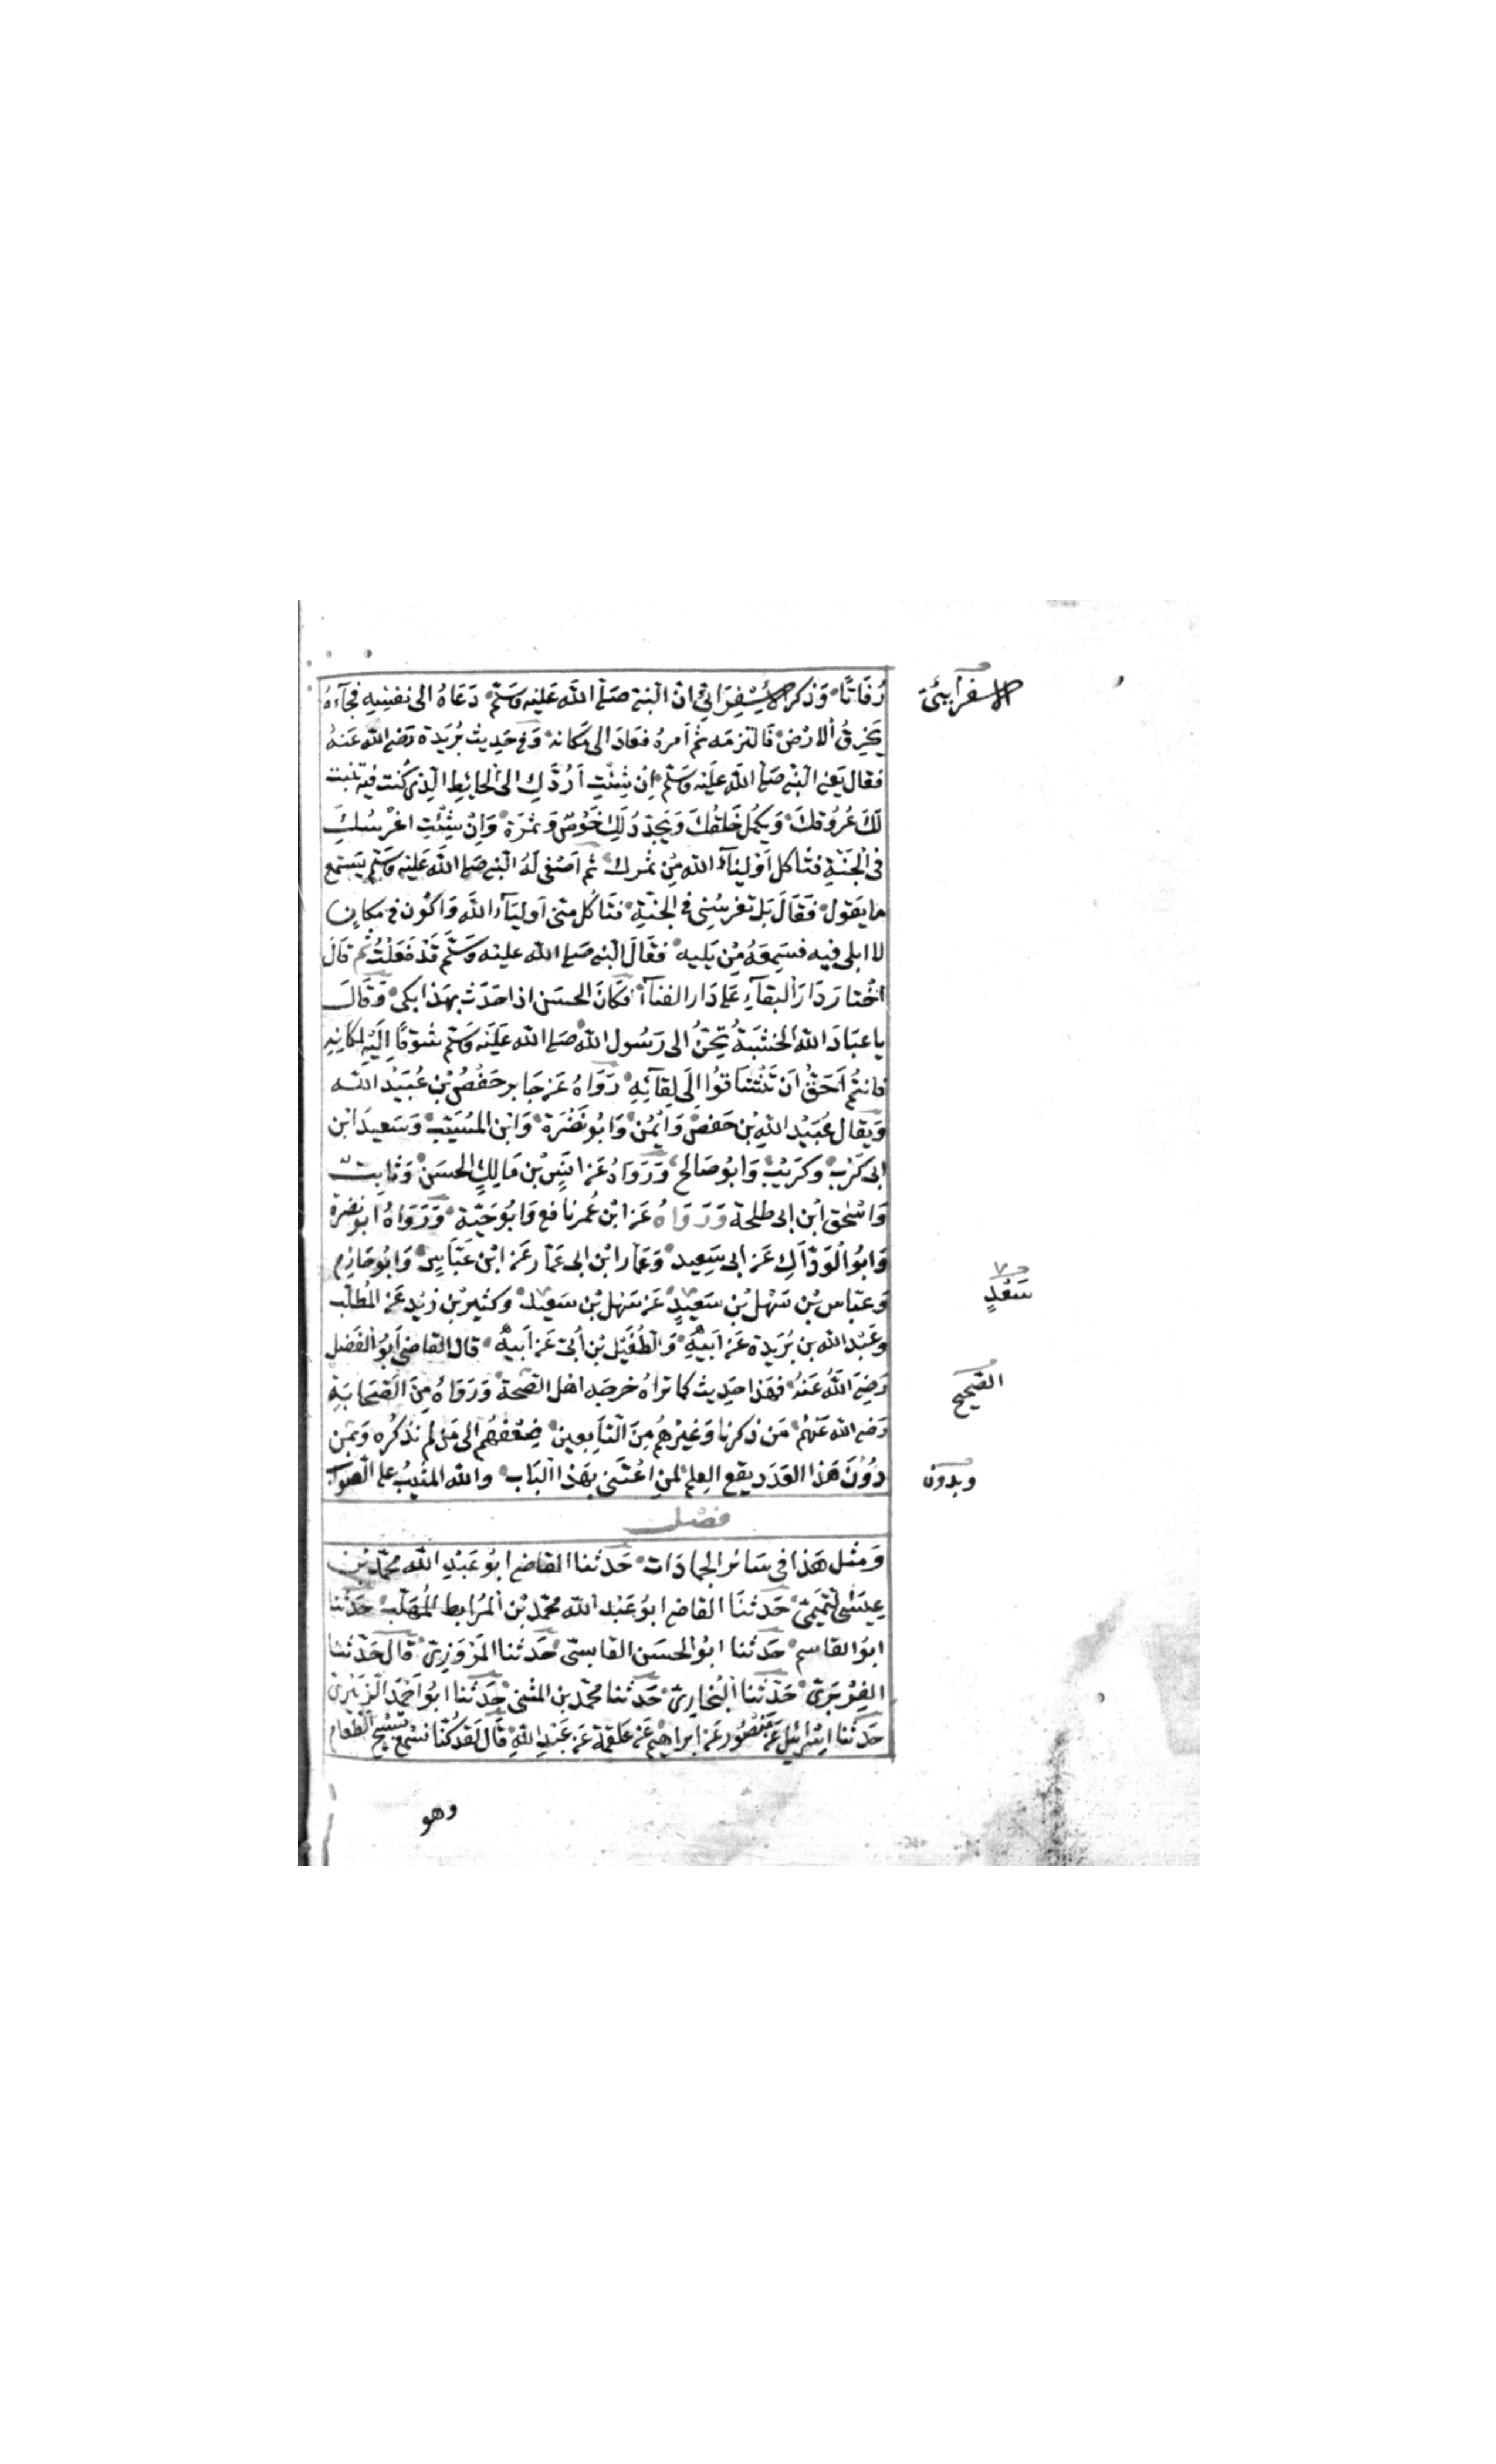 رُفَاتًا وَذَكَرَ الْأَسْفِرَائِنِيّ انّ النبي صَلّى اللَّه عَليْه وَسَلّم دَعَاهُ الى نفسِهِ فجآءهُ
يَخْرِقُ الارْضَ فَالتزمَه ثم اَمرهُ فعَادَ الى مَكانه وَفي حَدِيث بُرَيدَة رَضي الله عَنهُ
فقال يَعني النبي صَلى اللَّه عَليْه وَسَلّم اِنْ شِئْتِ اَرُدُّكِ الى الحَائِطِ الّذِي كُنت فيه تنبت
لكَ عُرُوقكَ وَيكمُل خَلقُكَ وَيُجَدَّدُ لَكِ خَوْصٌ وَثمَرَة وَاِنْ شِئْتِ اغْرِسُكِ
في الجَنّةِ فتَأكل اَوْلِيَآءُ الله مِنْ ثمرك ثُم اَصْغى لَهُ النبي صَلى اللَّه عَليْه وَسَلّم يَستمع
مَا يَقول فَقَالَ بَل تَغرِسُنِي في الجنّةِ فتَأكُل مِنّي اَولِيَآءُ اللَّه وَاكُون في مَكانٍ
لا ابلى فيه فسَمِعَهُ مَنْ يَلِيه فقَالَ النبي صَلى الله عليْه وَسَلّم قَدْ فَعَلْتُ ثم قَالَ
اخْتارَ دَارَ البقآءِ عَلى دَار الفنآءِ فكَانَ الحسَن اذا حَدّث بهَذا بكى وَقَالَ
يا عبَادَ اللَّه الخشَبَةُ تحِنُّ الى رَسُول الله صَلى الله عَليْه وَسَلّم شَوْقًا اِلَيْهِ لمكانِهِ
فانتُم اَحَقُّ اَن تَشْتَاقُوا اِلَى لِقآئِهِ رَوَاهُ عَن جَابر حَفْصُ بْن عُبَيْد اللَّه
وَيقال عُبَيْد اللَّه بْن حَفص وَايْمُن وَابُو نَضْرَة وَابْن المُسَيّب وَسَعيد ابْن
ابي كَرْب وَكرَيْب وَابُو صَالح وَرَوَاهُ عَن انَسِ بْن مَالِكٍ الحسَن وَثابت
وَاسْحٰق ابْن ابي طلحة وَرَوَاهُ عَن ابْن عُمر نافع وَابُو حَيّة وَرَوَاهُ ابو نضرة
وَابُو الْوَدّاكِ عَن ابي سَعِيد وَعَمّار ابْن ابي عَمّار عَن ابْن عَبّاسٍ وَابُو حَازِم
وَعبّاس بْن سَهْل بْن سَعيدٍ عَن سَهْل بْن سَعيد وَكثير بْن زَيْد عَن المُطلّب
وعَبْد الله بن بُرَيدة عَن اَبيْهِ وَالطُفَيْل بْن اُبَي عَن اَبيْهِ قال القاضي اَبو الفَضل
رَضِيَ اللَّه عَنهُ فهَذا حَدِيث كما تراهُ خرجَه اهْل الصّحة وَرَوَاهُ مِنَ الصَّحَابَةِ
رَضي الله عَنهُمْ مَن ذكرنا وَغيْرهُم مِنَ التابِعين ضِعْفُهُم الى مَن لم نذكُره وَبمَن
دُوْنَ هَذا العَدَد يقع العِلم لمنِ اعْتَنى بهَذا البَاب والله المثيبُ على الصوَاب
فصْل
وَمثْل هَذا في سَائر الجمادَات حَدثنا القاضي ابُو عَبْدِ الله محمّد بْن
عِيسَى التّميمِي حَدثنَا القاضي ابُو عَبْد الله محمّد بْن المُرَابط المُهَلّب حَدثنا
ابُو القاسم حَدثنا ابُو الحسَن القابسِي حَدثنا المَرْوَزي قال حَدّثنا
الفِرْبَرِيّ حَدّثنا البُخَارِيّ حَدثنا محمّد بن المثنى حَدثنا ابُو اَحْمَد الزبَيْري
حَدثنا اِسْرائيل عَن مَنْصُور عَن ابراهيم عَن عَلقمَة عَن عَبْدِ اللَّهِ قَال لَقَد كُنّا نسْمَع تسْبيح الطعَام
وهو
الاسفرآيينى
سَعْدٍ
الصّحيح
وبدون